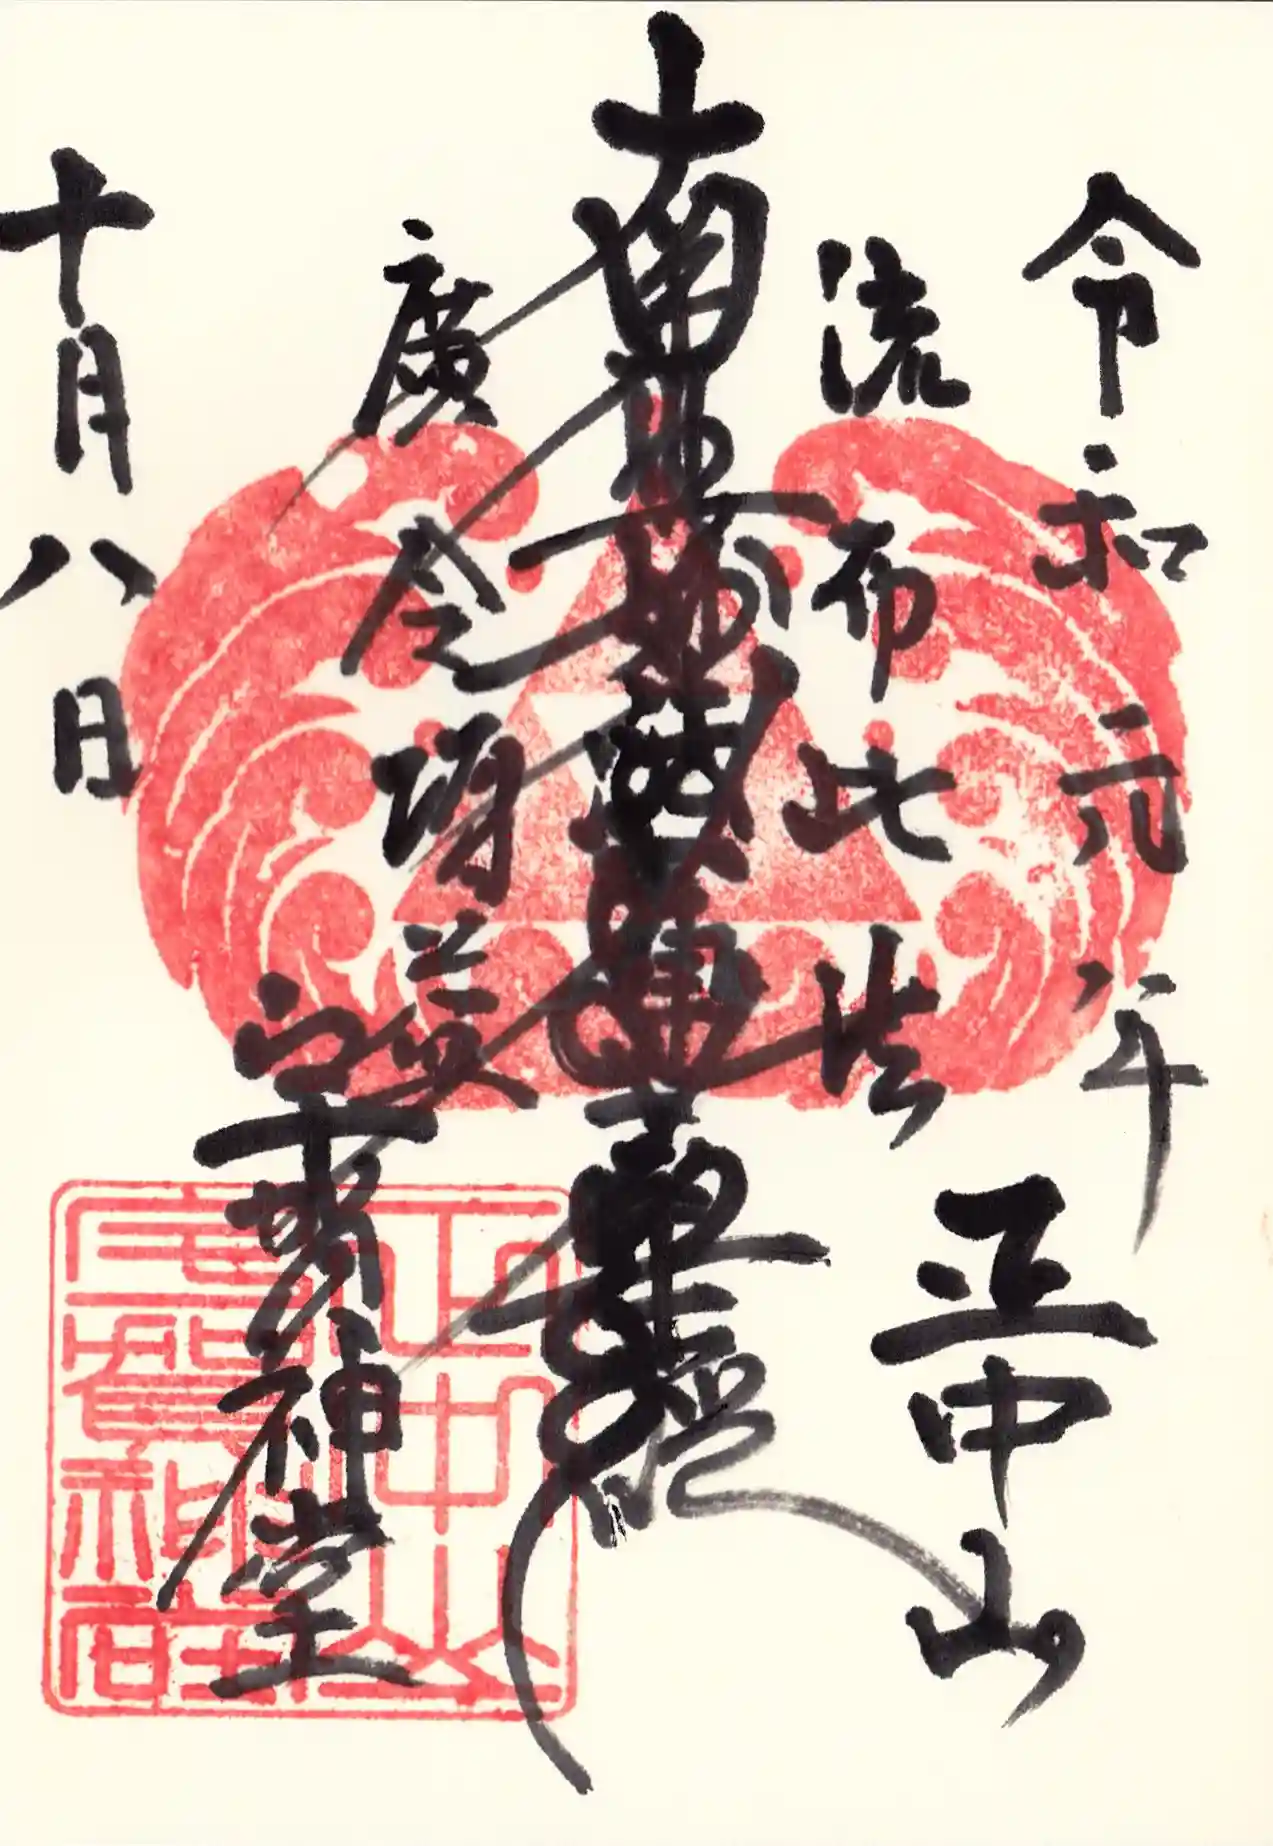 令和元年
正中山
流布此法
南無妙法蓮華経
廣令増益
宇賀神堂
十月八日
正中山